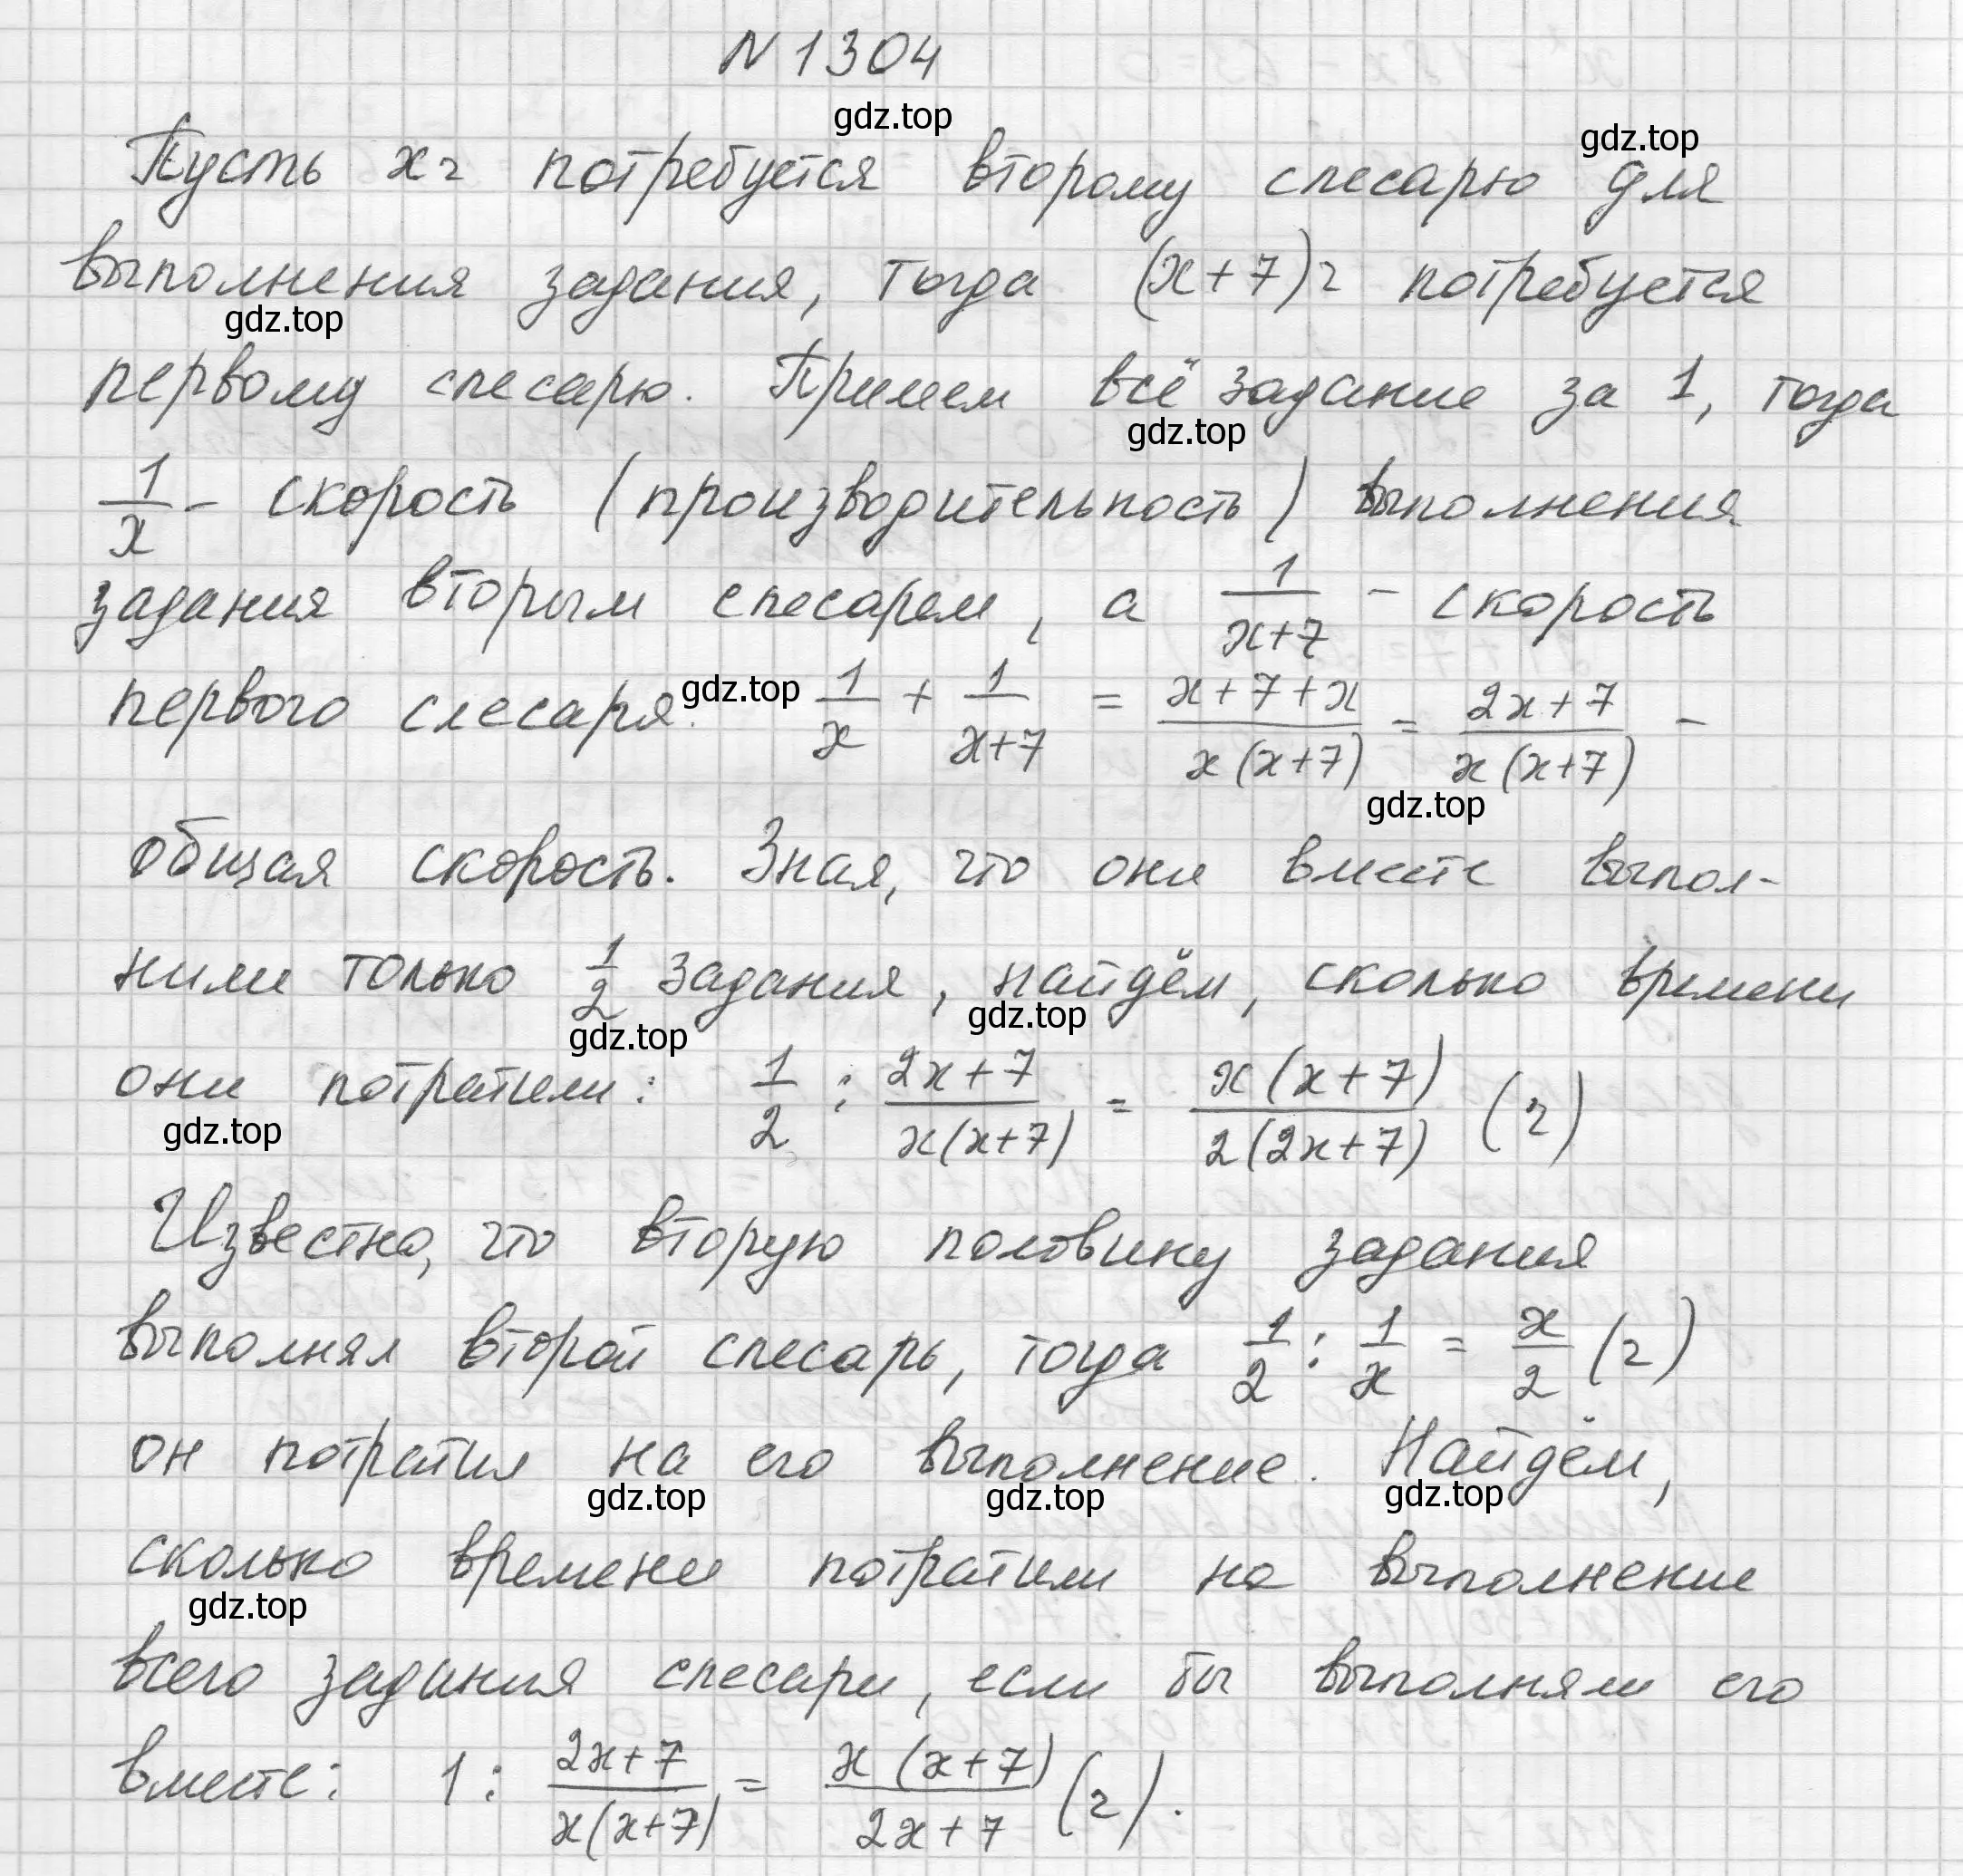 N 1304
gdz.top
gdz.top
Пусть x ч потребуется второму слесарю для
выполнения задания, тогда (x+7) ч потребуется
gdz.top
первому слесарю. Примем всё задание за 1, тогда
gdz.top
1/x - скорость (производительность) выполнения
задания вторым слесарем, а 1/(x+7) - скорость
первого слесаря. gdz.top 1/x + 1/(x+7) = (x+7+x)/(x(x+7)) = (2x+7)/(x(x+7)) -
gdz.top
общая скорость. Зная, что они вместе выпол-
нили только 1/2 задания, найдём, сколько времени
gdz.top gdz.top
они потратили: 1/2 : (2x+7)/(x(x+7)) = (x(x+7))/(2(2x+7)) (ч)
gdz.top
Известно, что вторую половину задания
выполнял второй слесарь, тогда 1/2 : 1/x = x/2 (ч)
он потратил на его выполнение. Найдём,
gdz.top gdz.top gdz.top
сколько времени потратили на выполнение
gdz.top
всего задания слесари, если бы выполняли его
вместе: 1 : (2x+7)/(x(x+7)) = (x(x+7))/(2x+7) (ч).